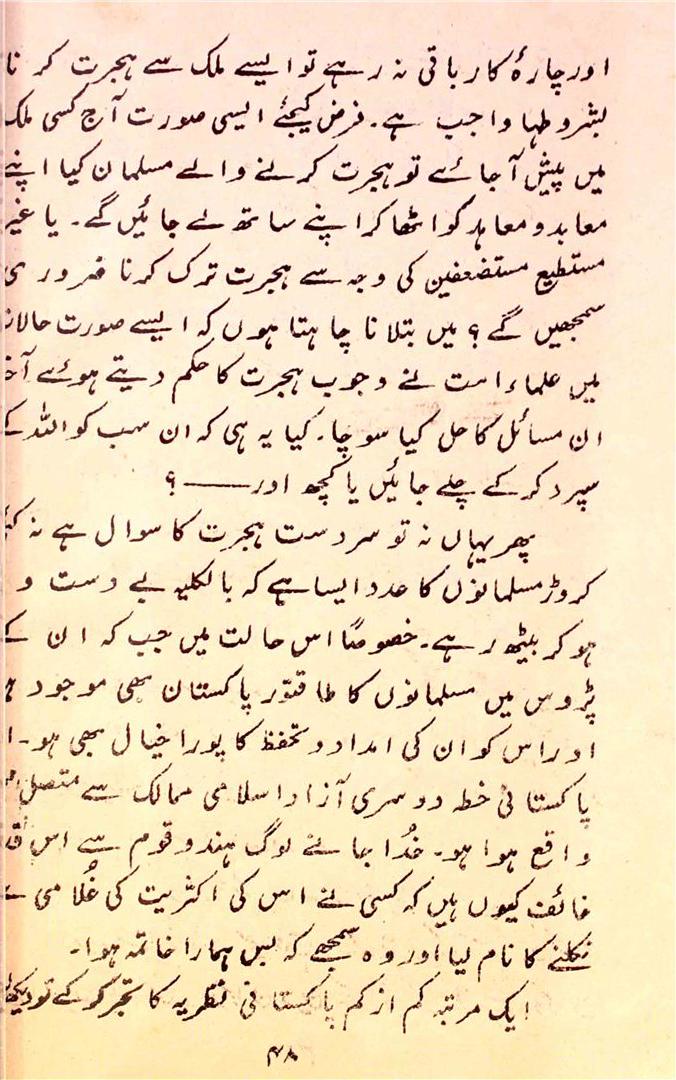 اور چارۂ کار باقی نہ رہے تو ایسے ملک سے ہجرت کرنا
بشروطہا واجب ہے۔ فرض کیجئے ایسی صورت آج کسی ملک
میں پیش آجائے تو ہجرت کرنے والے مسلمان کیا اپنے
معابد و معاہد کو اٹھا کر اپنے ساتھ لے جائیں گے۔ یا غیر
مستطیع مستضعفین کی وجہ سے ہجرت ترک کرنا ضروری
سمجھیں گے؟ میں بتلانا چاہتا ہوں کہ ایسے صورت حالات
میں علماء امت نے وجوب ہجرت کا حکم دیتے ہوئے
ان مسائل کا حل کیا سوچا۔ کیا یہ ہی کہ ان سب کو اللہ کے
سپرد کرکے چلے جائیں یا کچھ اور——؟
پھر یہاں نہ تو سردست ہجرت کا سوال ہے نہ
کروڑ مسلمانوں کا عدد ایسا ہے کہ بالکلیہ بے دست و
ہو کر بیٹھ رہے۔ خصوصًا اس حالت میں جب کہ ان کے
پڑوس میں مسلمانوں کا طاقتور پاکستان بھی موجود
اور اس کو ان کی امداد و تحفظ کا پورا خیال بھی ہو۔
پاکستانی خطہ دوسری آزاد اسلامی ممالک سے متصل
واقع ہوا ہو۔ خُدا جانے لوگ ہندو قوم سے اس
خائف کیوں ہیں کہ کسی نے اس کی اکثریت کی غُلامی سے
نکلنے کا نام لیا اور وہ سمجھے کہ بس ہمارا خاتمہ ہوا۔
ایک مرتبہ کم از کم پاکستانی نظریہ کا تجربہ کرکے تو
۴۸